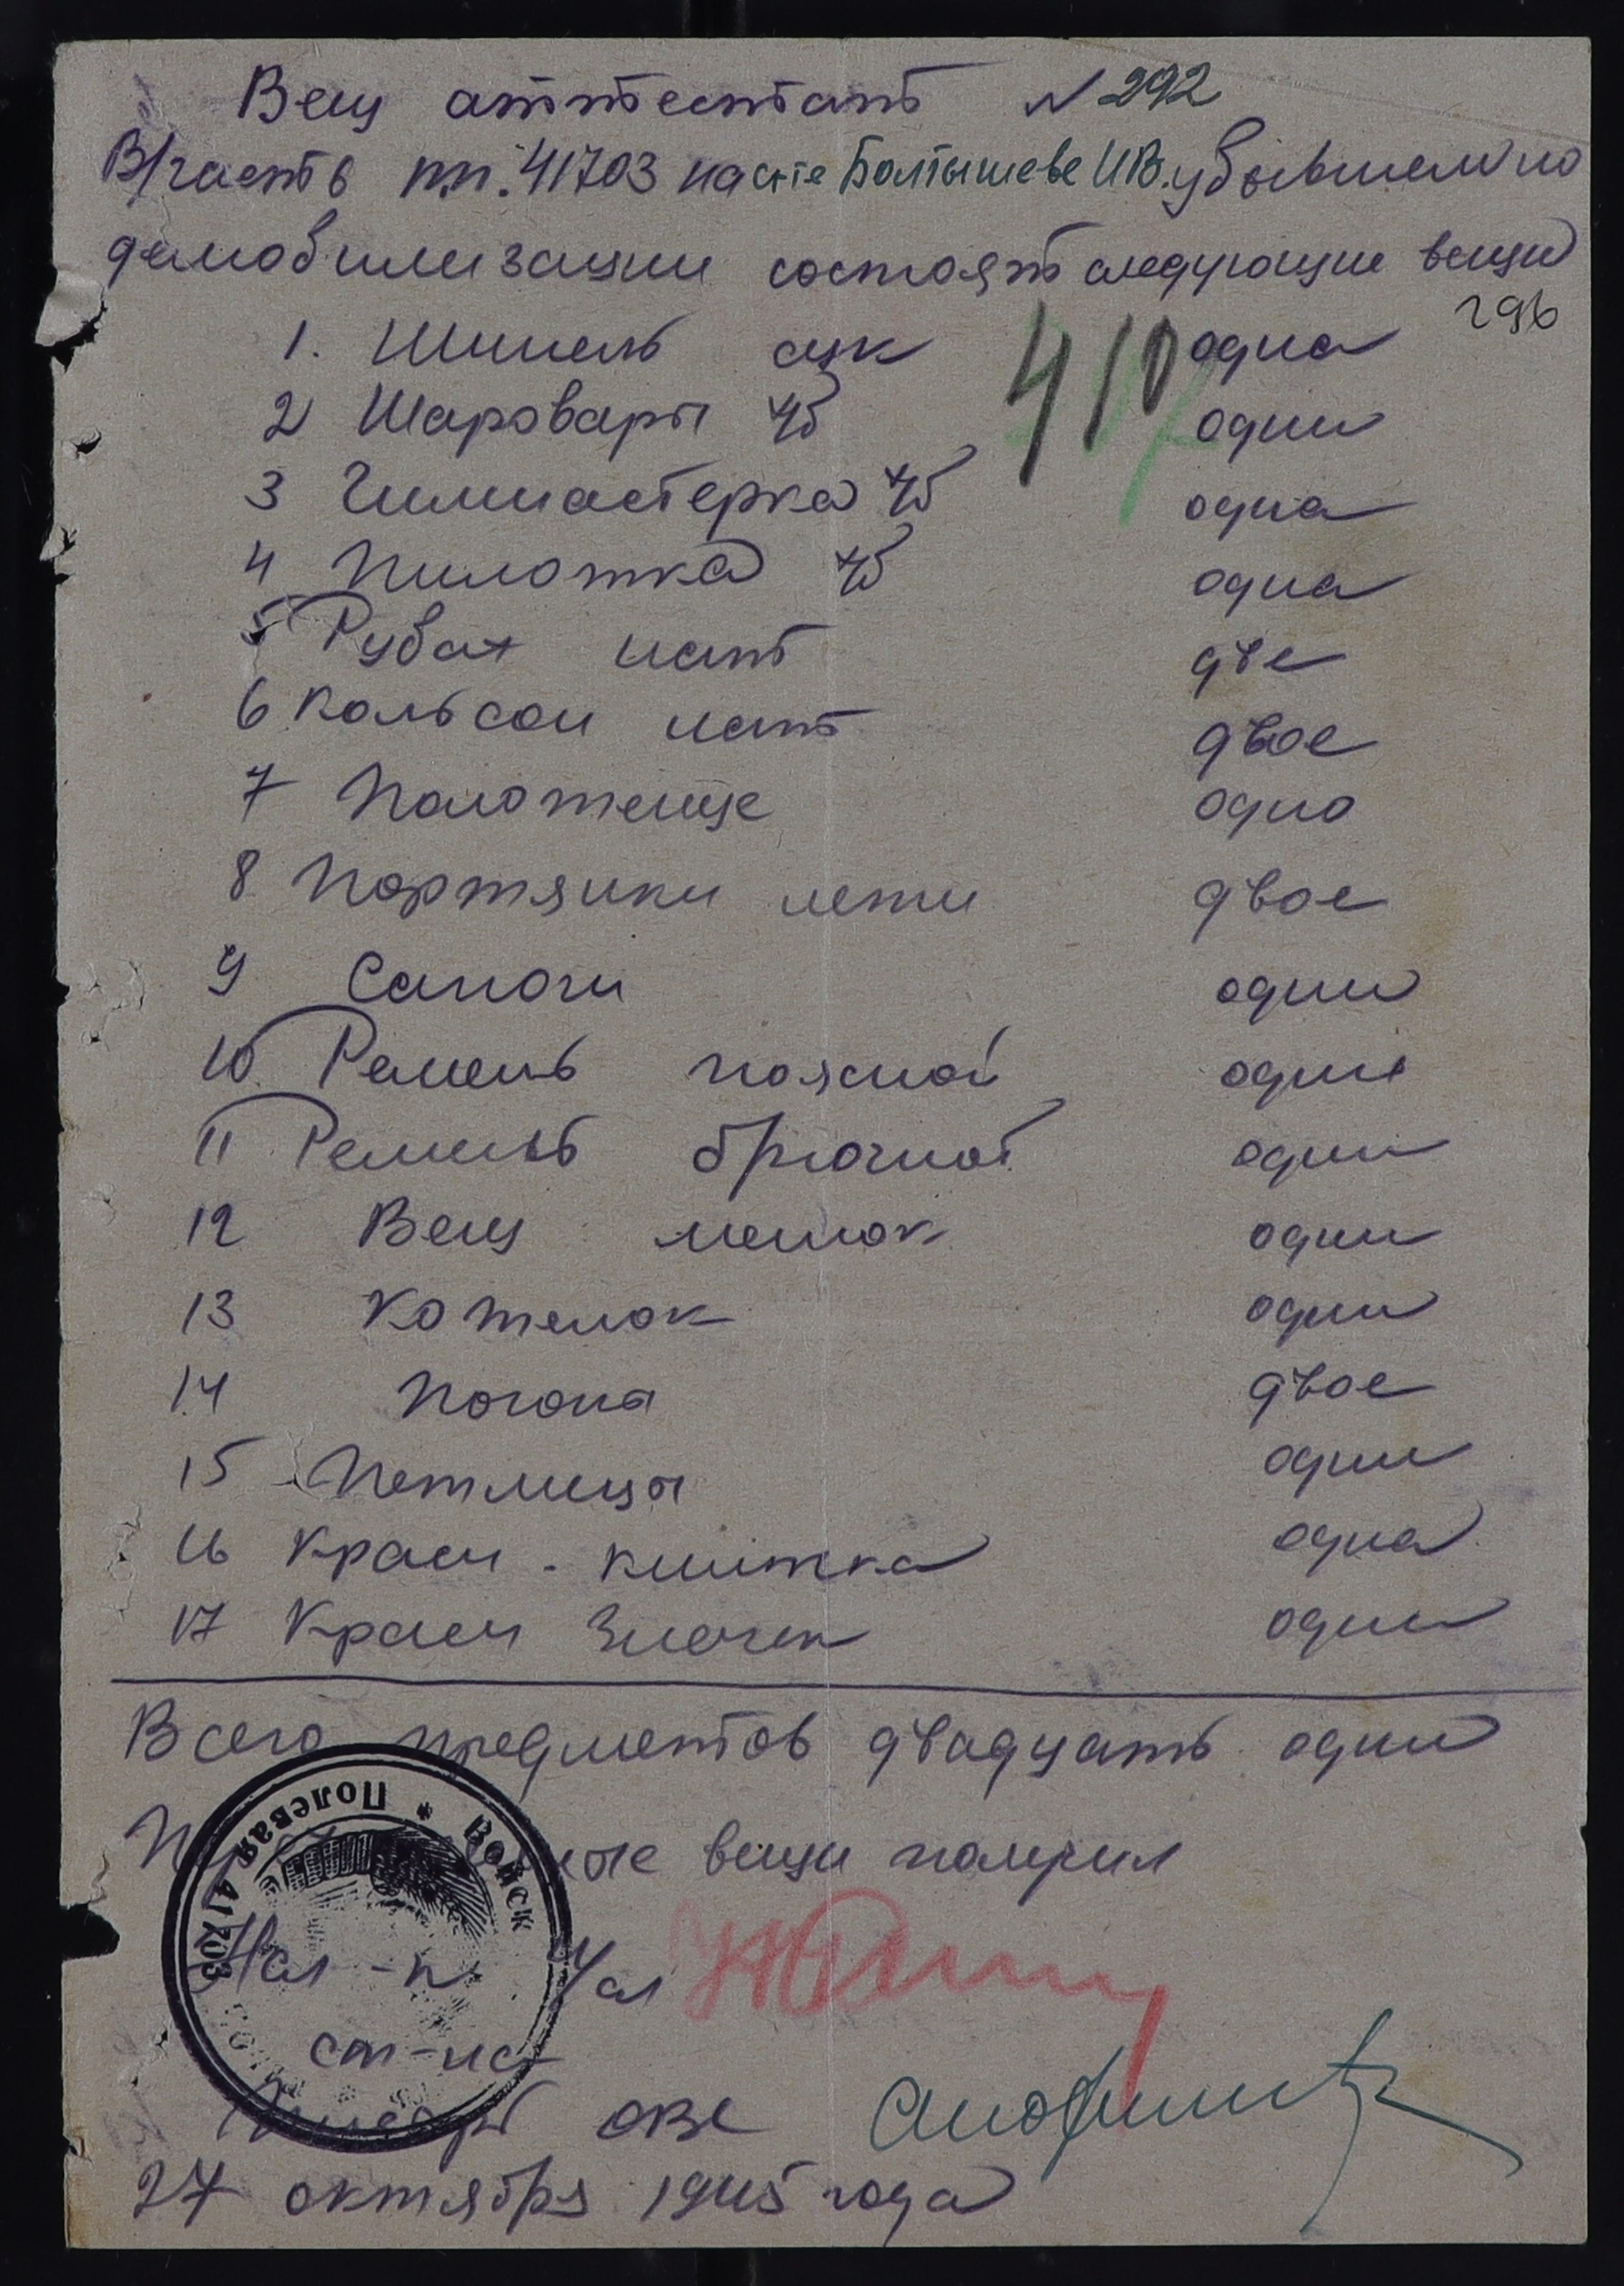 Вещ аттестат N 292
В/часть пп. 41703 на с-те Болтышеве И.В. убывшем по
демобилизации состоят следующие вещи
296
1. Шинель сук одна
410
2 Шаровары хб одни
3 Гимнастерка хб одна
4 Пилотка хб одна
5 Рубах нат две
6 Кольсон нат двое
7 Полотенце одно
8 Портянки летн двое
9 Сапоги одни
10 Ремень поясной один
11 Ремень брючной один
12 Вещ мешок один
13 Котелок один
14 Погоны двое
15 Петлицы одни
16 Красн. книжка одна
17 Красн Значек один
Всего предметов двадцать один
вещи получил
Войск * Полевая 41703
Нач-к
ст-на
ОВС
27 октября 1945 года